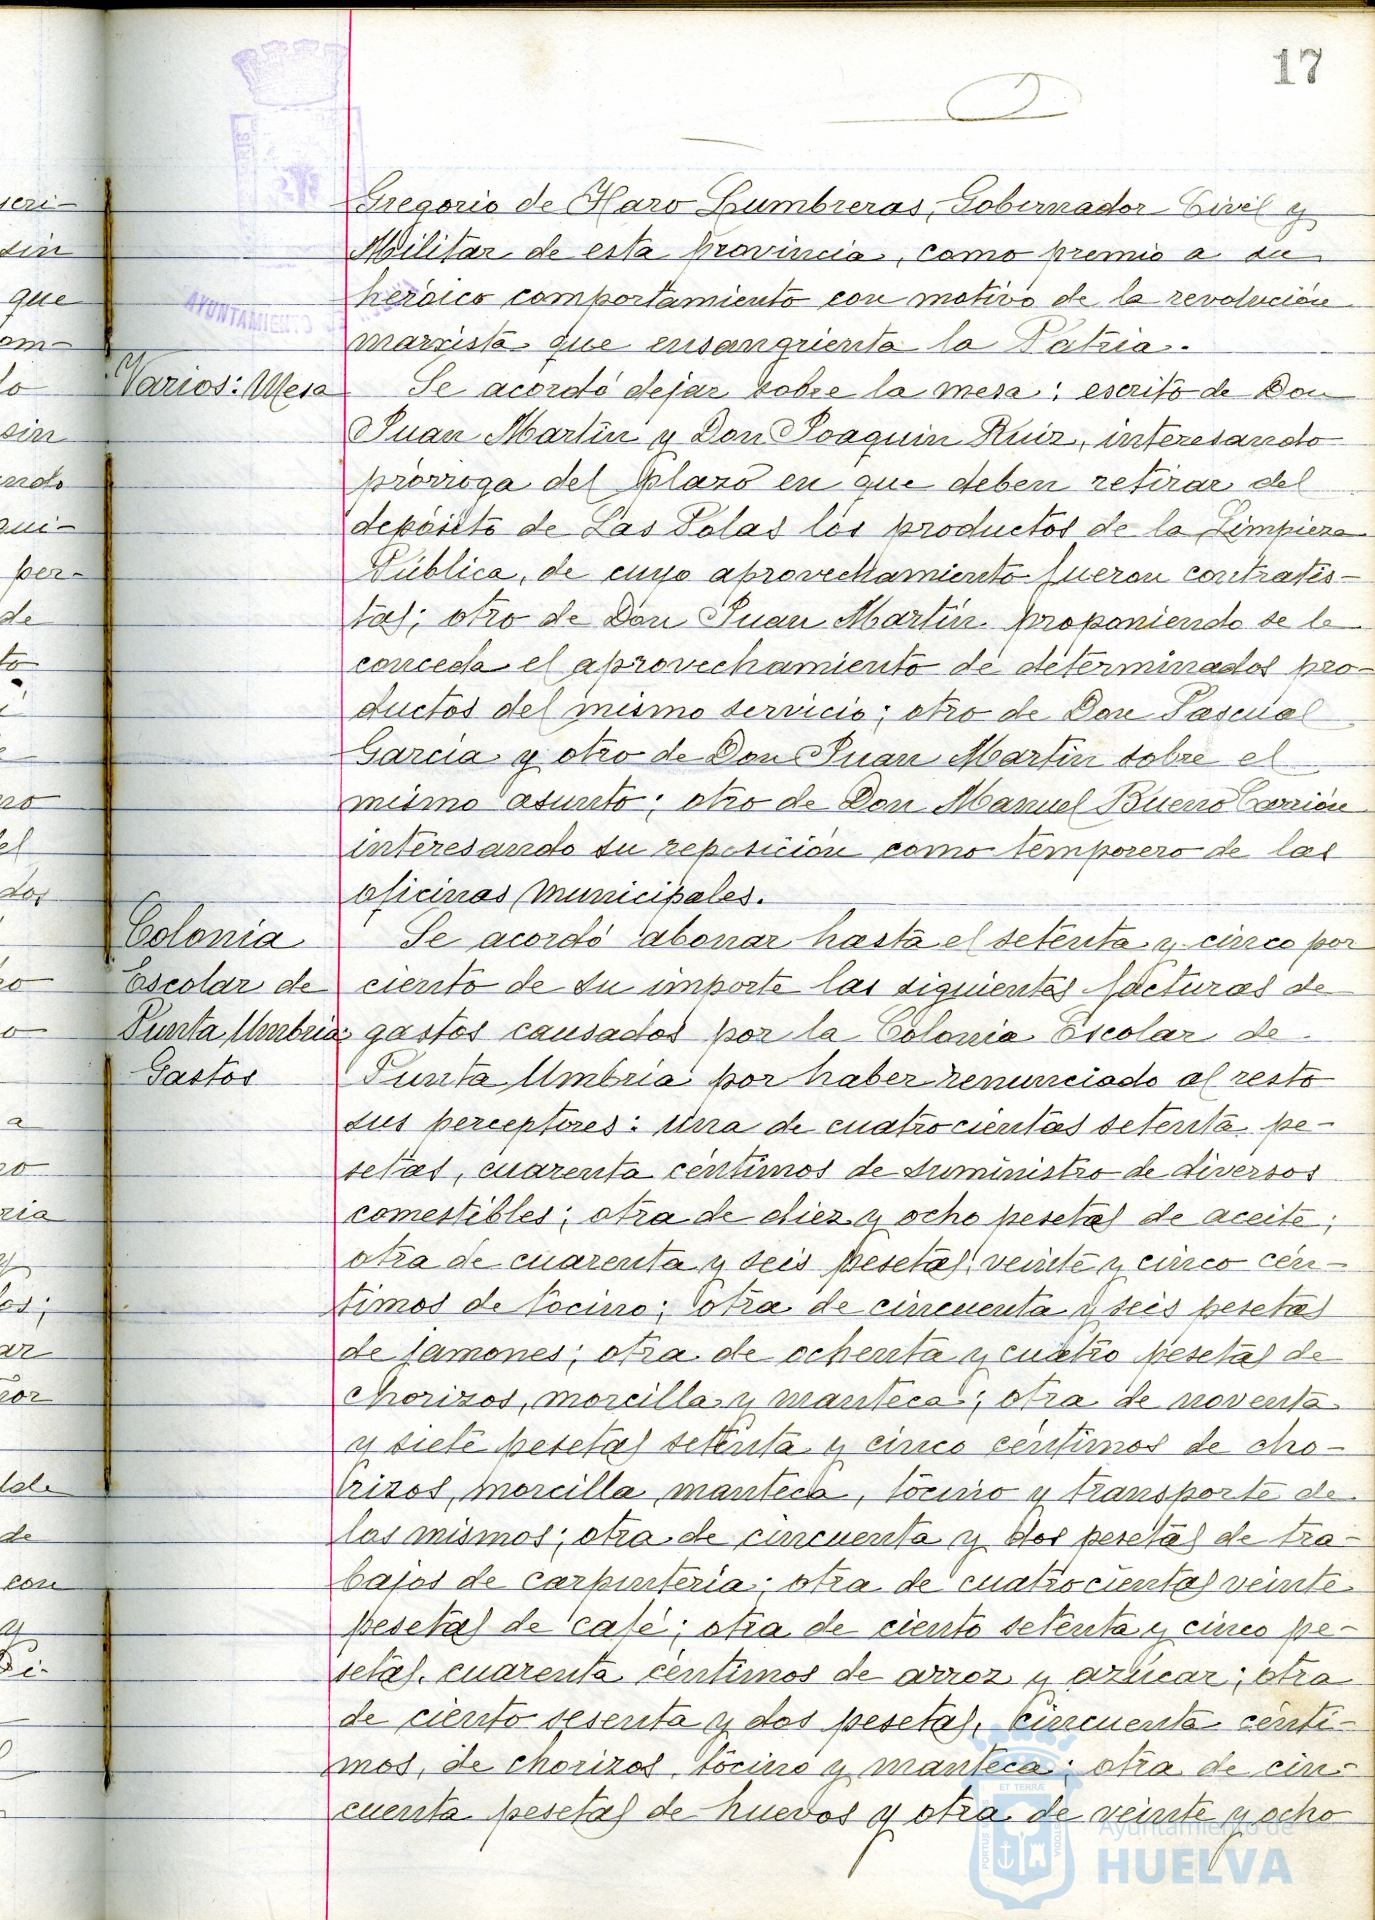 17
Gregorio de Haro Lumbreras, Gobernador Civil y
Militar de esta provincia, como premio a su
heróico comportamiento con motivo de la revolución
marxista que ensangrienta la Patria.
Varios: Mesa
Se acordó dejar sobre la mesa: escrito de Don
Juan Martín y Don Joaquin Ruiz, interesando
prórroga del plazo en que deben retirar del
depósito de Las Polas los productos de la Limpieza
Pública, de cuyo aprovechamiento fueron contratis-
tas; otro de Don Juan Martín proponiendo se le
conceda el aprovechamiento de determinados pro-
ductos del mismo servicio; otro de Don Pascual
García y otro de Don Juan Martín sobre el
mismo asunto; otro de Don Manuel Bueno Carrión
interesando su reposición como temporero de las
oficinas municipales.
Colonia
Escolar de
Punta Umbria:
Gastos
Se acordó abonar hasta el setenta y cinco por
ciento de su importe las siguientes facturas de
gastos causados por la Colonia Escolar de
Punta Umbria por haber renunciado al resto
sus perceptores: una de cuatrocientas setenta pe-
setas, cuarenta céntimos de suministro de diversos
comestibles; otra de diez y ocho pesetas de aceite;
otra de cuarenta y seis pesetas, veinte y cinco cén-
timos de tocino; otra de cincuenta y seis pesetas
de jamones; otra de ochenta y cuatro pesetas de
chorizos, morcilla y manteca; otra de noventa
y siete pesetas setenta y cinco céntimos de cho-
rizos, morcilla, manteca, tocino y transporte de
los mismos; otra de cincuenta y dos pesetas de tra-
bajos de carpintería; otra de cuatrocientas veinte
pesetas de café; otra de ciento setenta y cinco pe-
setas, cuarenta céntimos de arroz y azúcar; otra
de ciento sesenta y dos pesetas, cincuenta cénti-
mos, de chorizos, tocino y manteca; otra de cin-
cuenta pesetas de huevos y otra de veinte y ocho
AYUNTAMIENTO DE
Ayuntamiento de
HUELVA